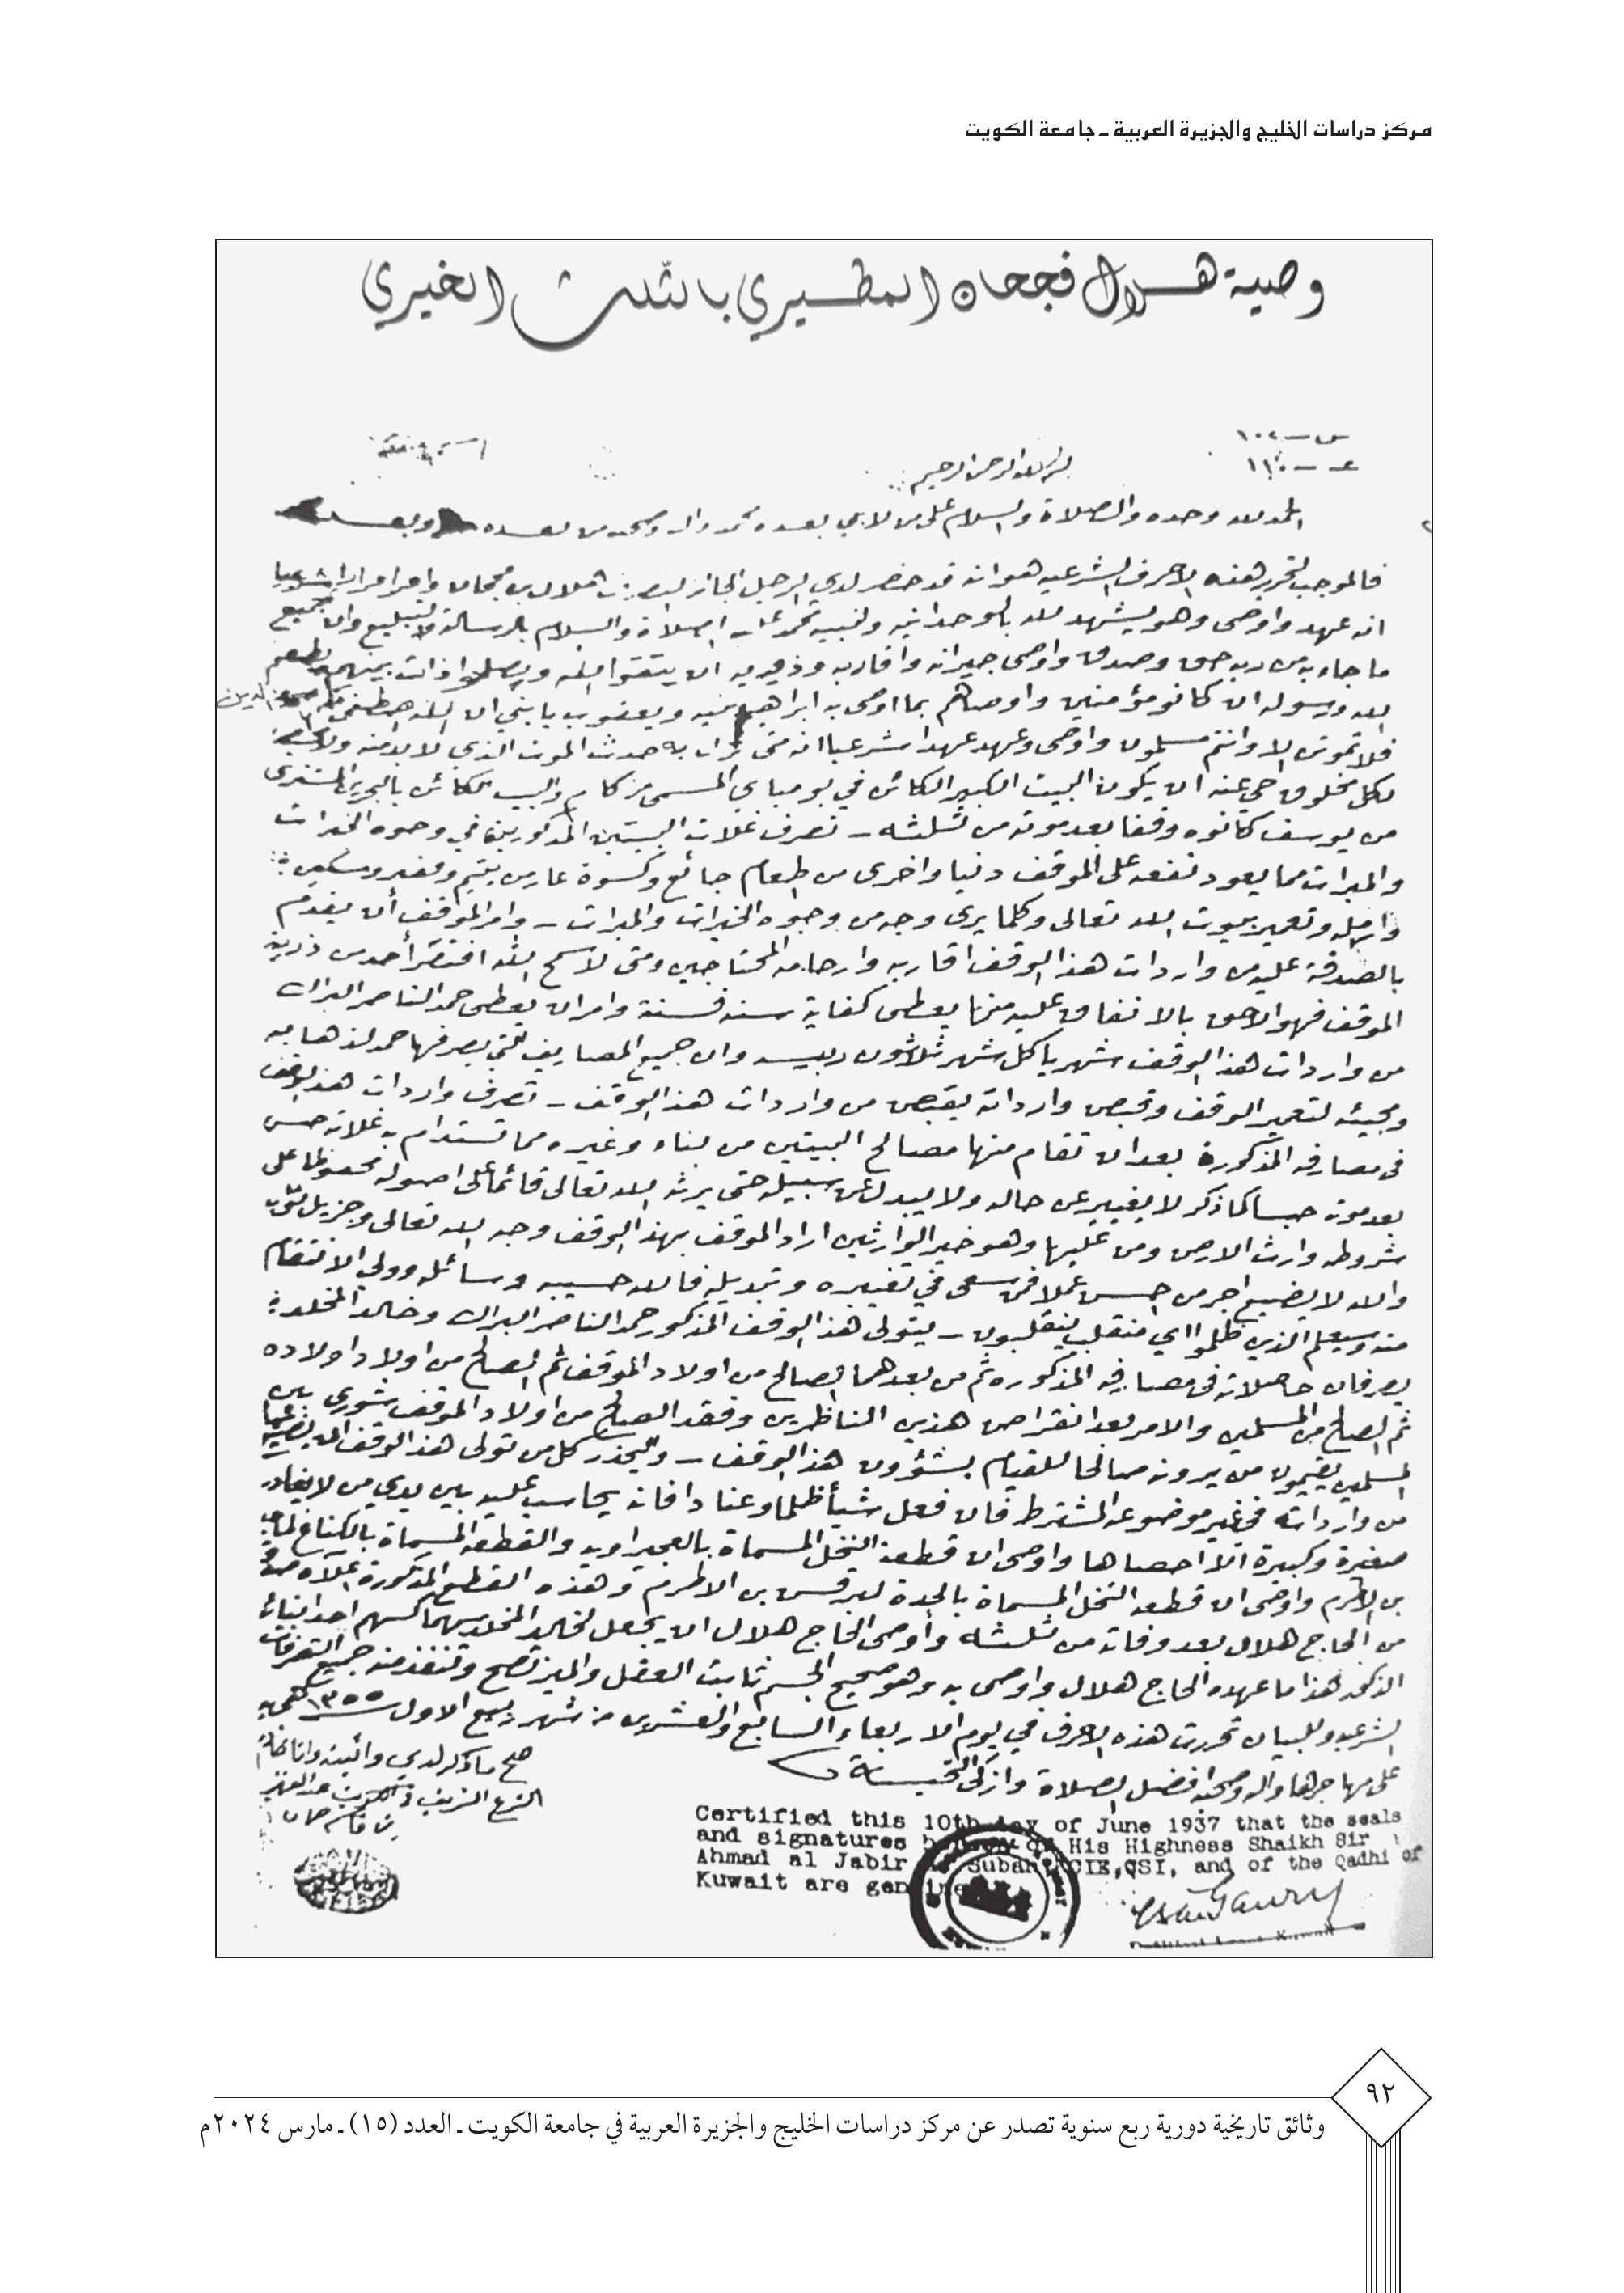 مركز دراسات الخليج والجزيرة العربية ـ جامعة الكويت
وصية هلال فجحان المطيري بالثلث الخيري
بسم الله الرحمن الرحيم
الحمد لله وحده والصلاة والسلام على من لا نبي بعده محمد واله وصحبه من بعده وبعد
فالموجب لتحرير هذه الاحرف الشرعيه هو انه قد حضر لدي الرجل الجائز التصرف هلال بن فجحان واقر اقرارا شرعيا
انه عهد واوصى وهو يشهد لله بالوحدانيه ولنبيه محمد عليه الصلاة والسلام بالرسالة والتبليغ وان جميع
ما جاء به من ربه حق وصدق واوصى جيرانه واقاربه وذويه ان يتقوا الله ويصلحوا ذات بينهم ويطيعو
الله ورسوله ان كانو مؤمنين واوصاهم بما اوصى به ابراهيم بنيه ويعقوب يا بني ان الله اصطفى لكم الدين
فلا تموتن الا وانتم مسلمون واوصى وعهد عهدا شرعيا انه متى نزل به حدث الموت الذي لا بد منه ولا
لكل مخلوق حي عنه ان يكون البيت الكبير الكائن في بومباي المسمى والبيت الكائن بالبحرين المشترى
من يوسف كانوه وقفا بعد موته من ثلثه ـ تصرف غلات البيتين المذكورين في وجوه الخيرات
والمبرات مما يعود نفعه على الموقف دنيا واخرى من طعام جائع وكسوة عار من يتيم وفقير ومسكين
وارمله وتعمير بيوت الله تعالى وكلما يرى وجه من وجوه الخيرات والمبرات ـ وامر الموقف أن يقدم
بالصدقة عليه من واردات هذا الوقف اقاربه وارحامه المحتاجين ومتى لا سمح الله افتقر أحد من ذرية
الموقف فهو الاحق بالانفاق عليه منها يعطى كفاية سنه فسنة وامر ان يعطى حمد الناصر البراك
من واردات هذا الوقف شهريا كل شهر ثلاثون ربيه وان جميع المصاريف التي يصرفها حمد لذهابه
ومجيئه لتعمير الوقف وقبض وارداته يقبض من واردات هذا الوقف ـ تصرف واردات هذا الوقف
في مصارفه المذكورة بعد ان تقام منها مصالح البيتين من بناء وغيره مما تستدام به غلاته حبس
بعد موته حبسا كما ذكر لا يغيير عن حاله ولا يبدل عن سبيله حتى يرثه الله تعالى قائما على اصوله محفوظا على
شروطه وارث الارض ومن عليها وهو خير الوارثين اراد الموقف بهذا الوقف وجه الله تعالى وجزيل ثوابه
والله لا يضيع اجر من احسن عملا فمن سعى في تغييره وتبديله فالله حسيبه وسائله وولي الانتقام
منه وسيعلم الذين ظلموا اي منقلب ينقلبون ـ يتولى هذا الوقف المذكور حمد الناصر البراك وخالد المخلد
يصرفان حاصلاته في مصارفه المذكوره ثم من بعدهما الصالح من اولاد الموقف ثم الصالح من اولاد اولاده
ثم الصالح من المسلمين والامر بعد انقراض هذين الناظرين وفقد الصالح من اولاد الموقف شورى بين
المسلمين يقيمون من يرونه صالحا للقيام بشؤون هذا الوقف ـ وليحذر كل من تولى هذا الوقف ان يضيع شيئا
من وارداته في غير موضوعه المشترط فان فعل شيأ ظلما وعنادا فانه يحاسب عليه بين يدي من لا يغادر
صغيرة وكبيرة الا احصاها واوصى ان قطعة النخل المسماة والقطعه المسماة
بن الاطرم واوصى ان قطعه النخل المسماة بالجدة بن الاطرم وهذه القطع المذكورة اعلاه
من الحاج هلال بعد وفاته من ثلثه واوصى الحاج هلال ان يجعل لخالد المخلد سهما كسهم احد ابنائه
الذكور هذا ما عهده الحاج هلال واوصى به وهو صحيح الجسم ثابت العقل والميز تصح وتنفذ منه جميع التصرفات
الشرعيه وللبيان تحررت هذه الاحرف في يوم الاربعاء السابع والعشرين من شهر ربيع الاول سنه ١٣٥٥ هجريه
على مهاجرها واله وصحبه افضل الصلاة وازكى التحية
صح ما ذكر لدي واثبته وانا خادم
الشرع الشريف في الكويت عبدالعزيز
بن قاسم حماده
Certified this 10th day of June 1937 that the seals
and signatures of His Highness Shaikh Sir
Ahmad al Jabir Subah KCIE, CSI, and of the Qadhi of
Kuwait are genuine
٩٢
وثائق تاريخية دورية ربع سنوية تصدر عن مركز دراسات الخليج والجزيرة العربية في جامعة الكويت ـ العدد (١٥) ـ مارس ٢٠٢٤م